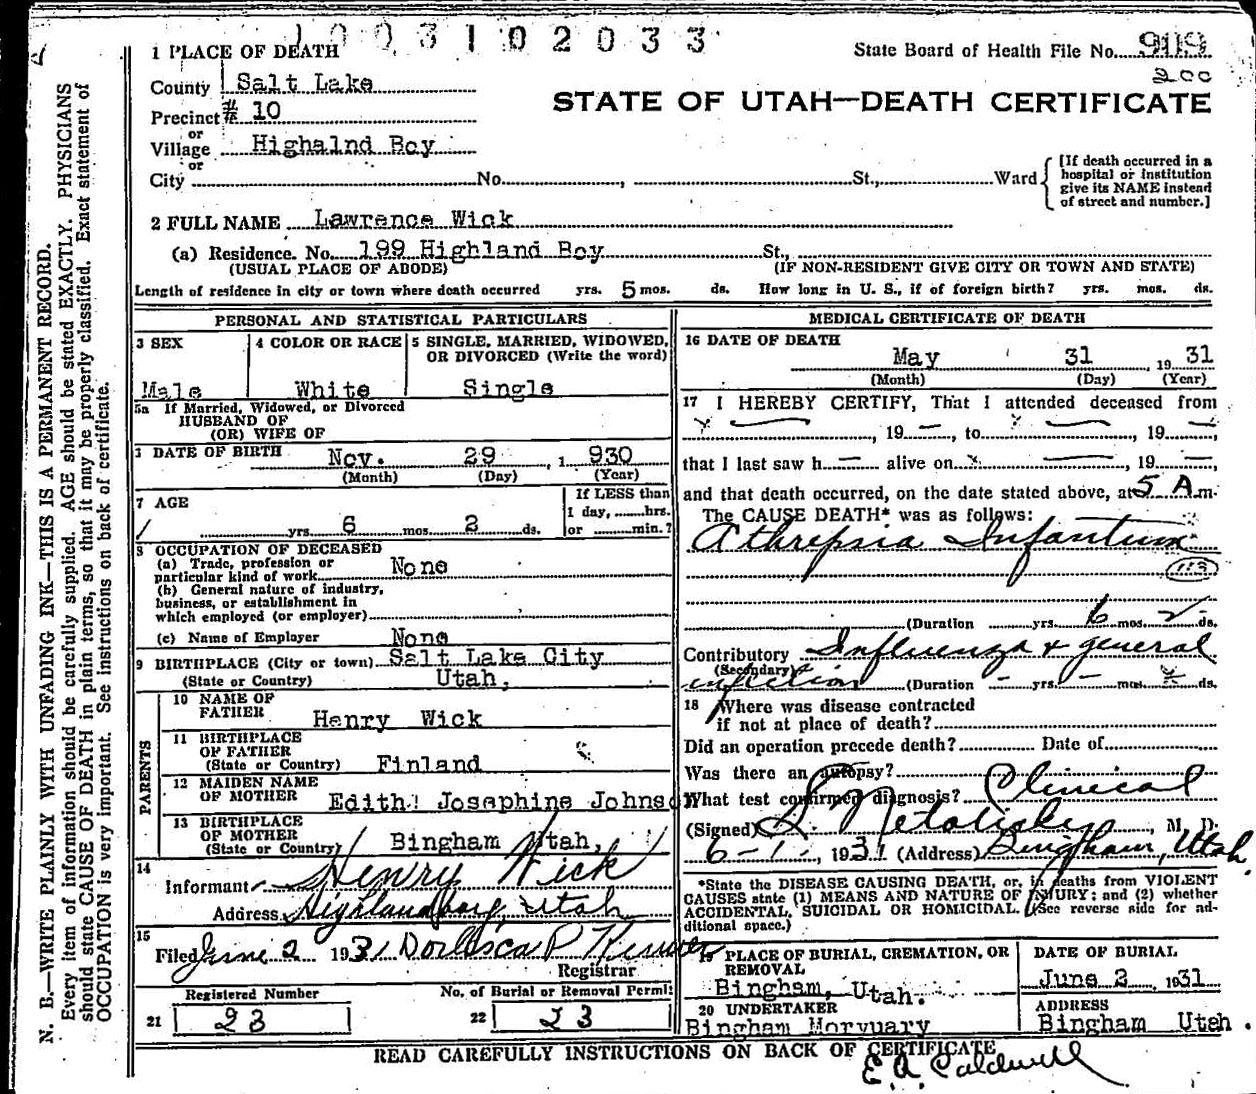 1003102033
1 PLACE OF DEATH
State Board of Health File No. 909
200
County Salt Lake
STATE OF UTAH—DEATH CERTIFICATE
Precinct # 10
or
Village Highalnd Boy
or
City No. , St., Ward
[If death occurred in a
hospital or institution
give its NAME instead
of street and number.]
2 FULL NAME Lawrence Wick
(a) Residence. No. 199 Highland Boy St.,
(USUAL PLACE OF ABODE) (IF NON-RESIDENT GIVE CITY OR TOWN AND STATE)
Length of residence in city or town where death occurred yrs. 5 mos. ds. How long in U. S., if of foreign birth? yrs. mos. ds.
PERSONAL AND STATISTICAL PARTICULARS
3 SEX 4 COLOR OR RACE 5 SINGLE, MARRIED, WIDOWED,
OR DIVORCED (Write the word)
Male White Single
5a If Married, Widowed, or Divorced
HUSBAND OF
(OR) WIFE OF
DATE OF BIRTH Nov. 29, 1930
(Month) (Day) (Year)
7 AGE
yrs. 6 mos. 2 ds.
If LESS than
1 day, hrs.
or min.?
8 OCCUPATION OF DECEASED
(a) Trade, profession or
particular kind of work None
(b) General nature of industry,
business, or establishment in
which employed (or employer)
(c) Name of Employer None
9 BIRTHPLACE (City or town) Salt Lake City
(State or Country) Utah.
PARENTS
10 NAME OF
FATHER Henry Wick
11 BIRTHPLACE
OF FATHER
(State or Country) Finland
12 MAIDEN NAME
OF MOTHER Edith Josephine Johns
13 BIRTHPLACE
OF MOTHER
(State or Country) Bingham Utah,
14
Informant Henry Wick
Address Highland boy, Utah
15
Filed June 2 1931 P
Registrar
Registered Number No. of Burial or Removal Permit
21 23 22 23
MEDICAL CERTIFICATE OF DEATH
16 DATE OF DEATH
May 31 1931
(Month) (Day) (Year)
17 I HEREBY CERTIFY, That I attended deceased from
, 19 —, to , 19 —,
that I last saw h — alive on , 19 —,
and that death occurred, on the date stated above, at 5 A m.
The CAUSE DEATH* was as follows:
Athrepsia Infantum
113
(Duration yrs. 6 mos. 2 ds.
Contributory Influenza & general
(Secondary)
infection (Duration – yrs. – mos. ds.
18 Where was disease contracted
if not at place of death?
Did an operation precede death? Date of
Was there an autopsy?
What test confirmed diagnosis? Clinical
(Signed) , M. D.
6-1-, 1931 (Address) Bingham, Utah
*State the DISEASE CAUSING DEATH, or, in deaths from VIOLENT
CAUSES state (1) MEANS AND NATURE OF INJURY; and (2) whether
ACCIDENTAL, SUICIDAL OR HOMICIDAL. (See reverse side for ad-
ditional space.)
19 PLACE OF BURIAL, CREMATION, OR
REMOVAL
Bingham, Utah.
DATE OF BURIAL
June 2, 1931
20 UNDERTAKER
Bingham Morvuary
ADDRESS
Bingham Uteh.
READ CAREFULLY INSTRUCTIONS ON BACK OF CERTIFICATE
E. A. Caldwell
N. B.—WRITE PLAINLY WITH UNFADING INK—THIS IS A PERMANENT RECORD.
Every item of information should be carefully supplied. AGE should be stated EXACTLY. PHYSICIANS
should state CAUSE OF DEATH in plain terms, so that it may be properly classified. Exact statement of
OCCUPATION is very important. See instructions on back of certificate.